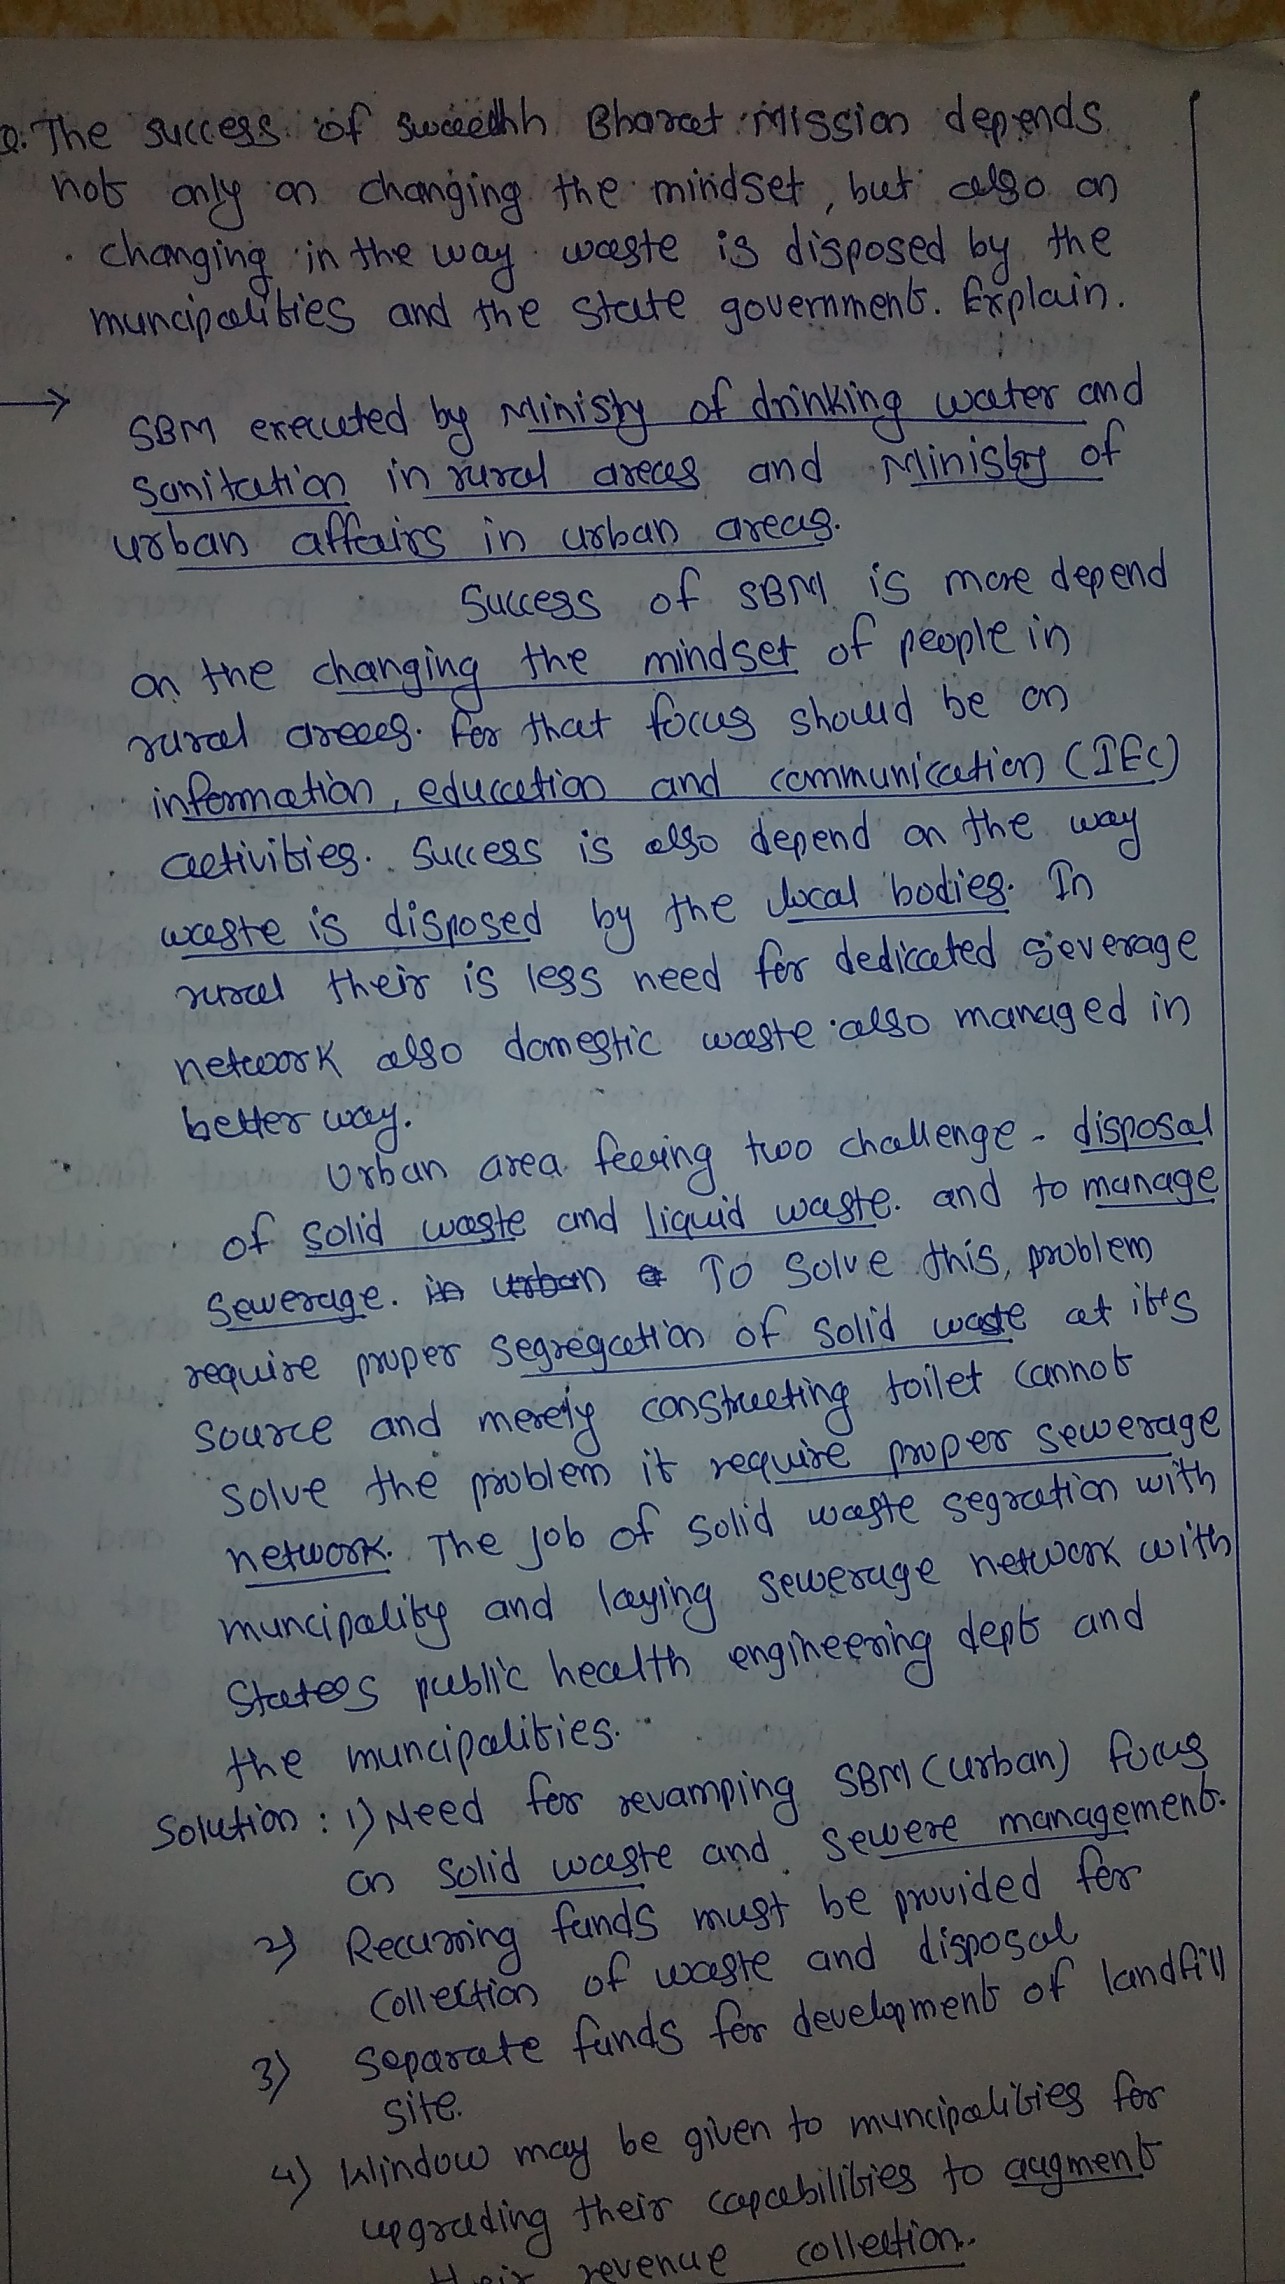 Q. The success of swceehh Bharat Mission depends
not only on changing the mindset, but also on
changing in the way waste is disposed by the
muncipalities and the state government. Explain.
→ SBM executed by Ministy of drinking water and
Sanitation in rural areas and Ministry of
urban affairs in urban areas.
Success of SBM is more depend
on the changing the mindset of people in
rural areas. For that focus should be on
information, education and communication (IEC)
activities. Success is also depend on the way
waste is disposed by the local bodies. In
rural their is less need for dedicated severage
network also domestic waste also managed in
better way.
Urban area feeing two challenge - disposal
of solid waste and liquid waste. and to manage
Sewerage. in urban To solve this, problem
require proper segregation of solid waste at it's
source and merely constructing toilet cannot
solve the problem it require proper sewerage
network. The job of solid waste segration with
muncipality and laying sewerage network with
States public health engineering dept and
the muncipalities.
Solution : 1) Need for revamping SBM (urban) focus
on solid waste and sewere management.
2) Recurring funds must be provided for
collection of waste and disposal
3) Separate funds for development of landfill
site.
4) Window may be given to muncipalities for
upgrading their capabilities to augment
their revenue collection.